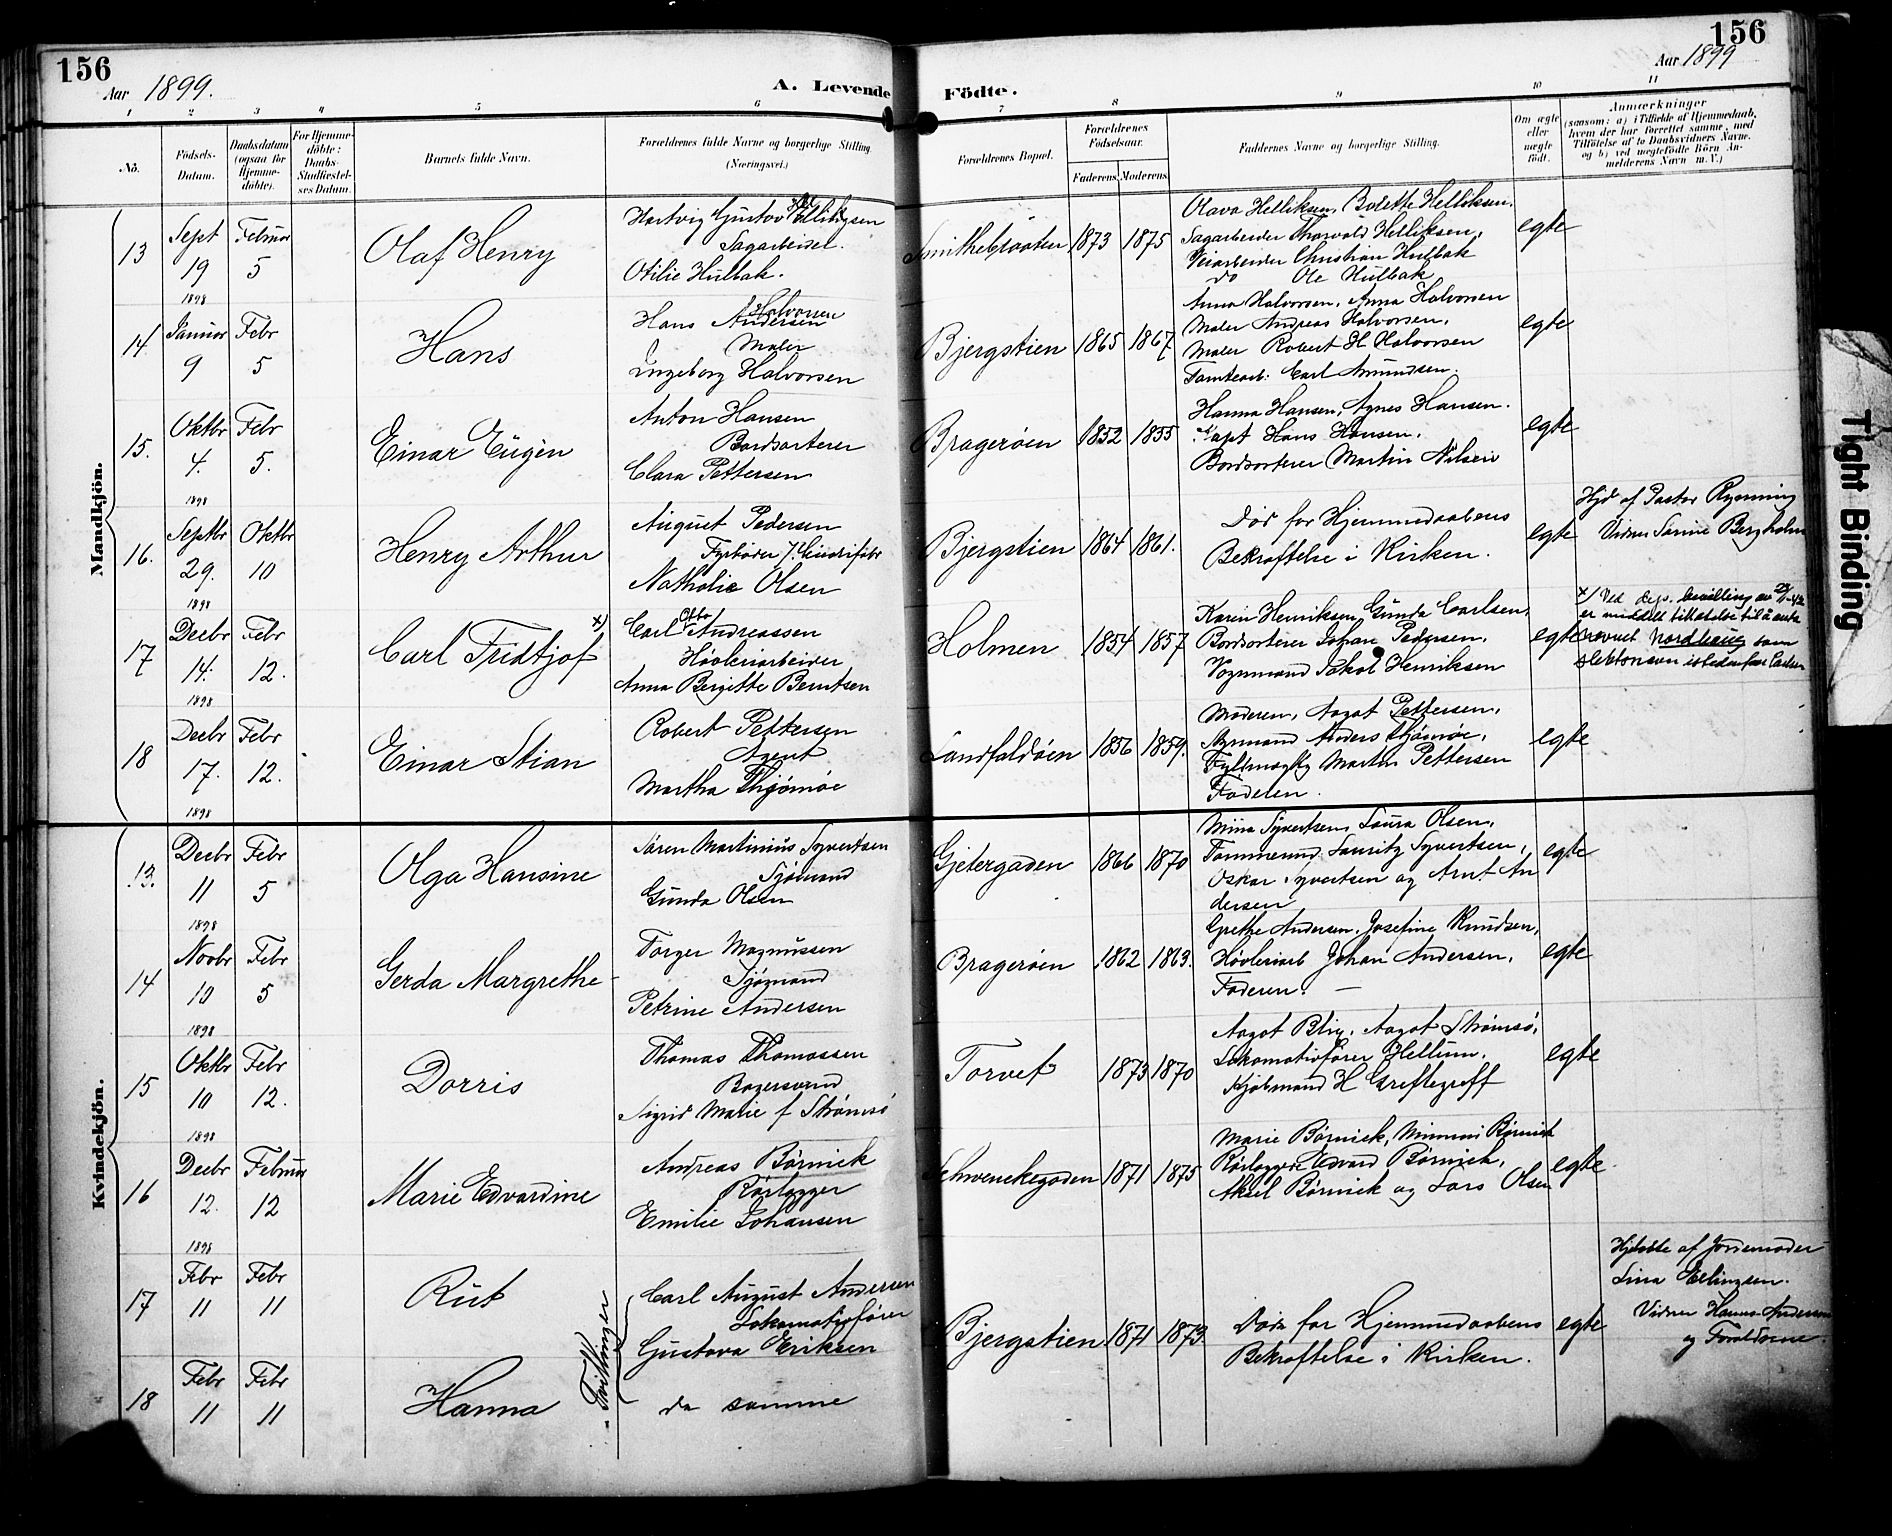 156
Aar 1899.
A. Levende
Födte.
156
Aar 1899
1 2 3 4 5 6 7 8 9 10 11
No.
Födsels-Datum.
Daabsdatum (ogsaa for Hjemme-döbte).
For Hjemme-döbte: Daabs-Stadfæstel-ses Datum.
Barnets fulde Navn.
Forældrenes fulde Navne og borgerlige Stilling. (Næringsvei.)
Forældrenes Bopæl.
Forældrenes Födselsaar.
Faderens. Moderens.
Faddernes Navne og borgerlige Stilling.
Om ægte eller uægte födt.
Anmærkninger
(saasom: a) i Tilfælde af Hjemmedaab, hvem der har forrettet samme, med Tilföielse af to Daabsvidners Navne, og b) ved uægtefödte Börn Anmelderens Navn m. V.)
Mandkjön.
13
Sept 19 1898
Februar 5
Olaf Henry
Hartvig Gustav
Sagarbeider.
Otilie Hulbak.
Smithebraaten
1873 1875
Olava Helliksen, Bolette Helliksen,
Sagarbeider Thorvald Helliksen,
Veiarbeider Christian Hulbak
do Ole Hulbak
egte
14
Januar 9
Febr 5
Hans
Halvorsen
Hans Andersen
Maler
Ingeborg Halvorsen
Bjergstien
1865 1867
Anna Halvorsen, Anna Halvorsen
Maler Andreas Halvorsen,
Maler Robert H Halvorsen
Tomtearb: Carl Amundsen.
egte
15.
Oktbr 4. 1898
Febr 5.
Einar Eugen
Anton Hansen
Bordsorterer
Clara Pettersen
Bragerøen
1852 1855
Hanna Hansen, Agnes Hansen.
Kapt Hans Hansen,
Bordsorterer Martin Nilsen
egte
16.
Septbr 29. 1898
Oktbr 10
Henry Arthur
August Pedersen
Fyrbøder
Nathalie Olsen
Bjergstien
1864 1861.
Død for Hjemmedaabens
Bekræftelse i Kirken.
egte
Hjd af Pastor Rynning
Vidner Bergholm
17
Decbr 14. 1898
Febr 12.
Carl Fridtjof x)
Otto
Carl Andreassen
Høvleriarbeider
Anna Bergitte Berntsen
Holmen
1854 1857
Karen Henriksen, Gunda Carlsen,
Bordsorterer Johan Pedersen,
Vognmand Jakob Henriksen
egte
x) Ved dep. bevilling av
er meddelt tillatelse til å anta
navnet Nordhaug som
slektsnavn istedenfor Carlsen
18
Decbr 17. 1898
Febr 12.
Einar Stian
Robert Pettersen
Agent
Martha Thjømøe
Landfaldøen
1856 1859.
Moderen, Aagot Pettersen,
Styrmand Anders Thjømøe,
Martin Pettersen
Faderen.
egte
Kvindekjön.
13.
Decbr 11 1898
Febr 5
Olga Hansine
Søren Martinius Syvertsen
Sjømand
Gunda Olsen
Gjetergaden
1866 1870
Mina Syvertsen, Laura Olsen,
Tømmermd Lauritz Syvertsen,
Oskar Syvertsen og Arnt An
dersen
egte
14
Novbr 10 1898
Febr 5
Gerda Margrethe
Torger Magnussen
Sjømand
Petrine Andersen
Bragerøen
1862 1863.
Grethe Andersen, Josefine Knudsen,
Høvleriarb Johan Andersen,
Faderen. —
egte
15
Oktbr 10 1898
Febr 12.
Dorris
Thomas Thomassen
Bagersvend
Sigrid Marie f Strømsø
Torvet
1873 1870
Aagot Blix, Aagot Strømsø,
Lokomotivfører Hellum,
Kjøbmand H Greftegreff
egte
16
Decbr 12. 1898
Februar 12
Marie Edvardine
Andreas Børnick
Rørlægger
Emilie Johansen
Schwenckegaden
1871 1875
Marie Børnick, Minni Børnick
Rørlæggere Edvard Børnick,
Aksel Børnick og Lars Olsen
egte.
17
Febr 11
Febr 11
Rut
Tvillinger
Carl August Andersen
Lokomotivfører
Gustava Eriksen
Bjergstien
1871 1873
Døde for Hjemmedaabens
Bekræftelse i Kirken.
egte
Hjdøbte af Jordemoder
Lina Erlingsen.
Vidner Hanna Andersen
og Forældrene.
18
Febr 11
Febr 11
Hanna
de samme
Tight Binding